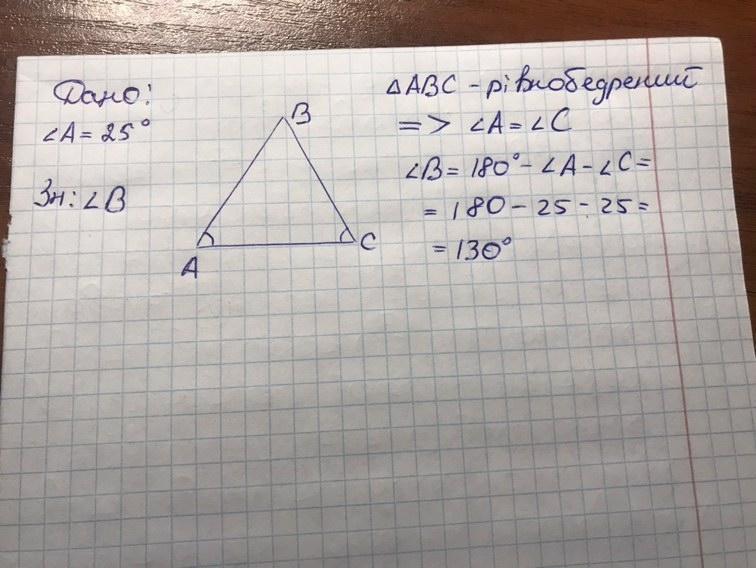 Дано:
∠A = 25°
Зн: ∠B
B
A
C
△ABC - рівнобедрений
=> ∠A = ∠C
∠B = 180° - ∠A - ∠C =
= 180 - 25 - 25 =
= 130°